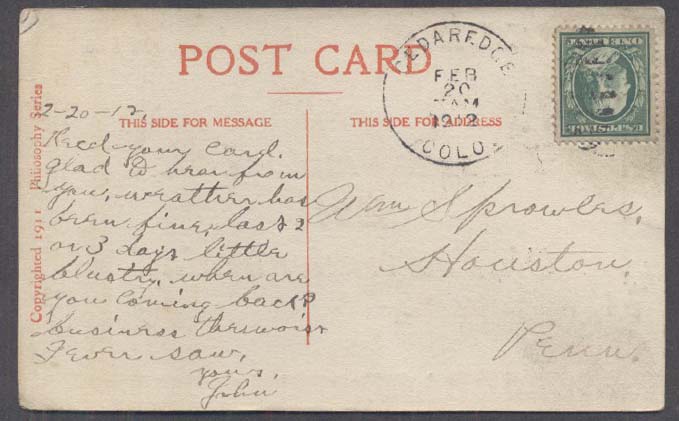 POST CARD
CEDAREDGE
FEB
20
AM
1912
COLO
ONE CENT
U.S. POSTAGE
THIS SIDE FOR MESSAGE
THIS SIDE FOR ADDRESS
Copyrighted 1911 Philosophy Series
2-20-12,
Recd your card.
glad to hear from
you, weather has
been fine, last 2
or 3 days little
blustry. when are
you coming back?
business the woist
I ever saw,
yours,
John
Wm Sprowles,
Houston,
Penn.